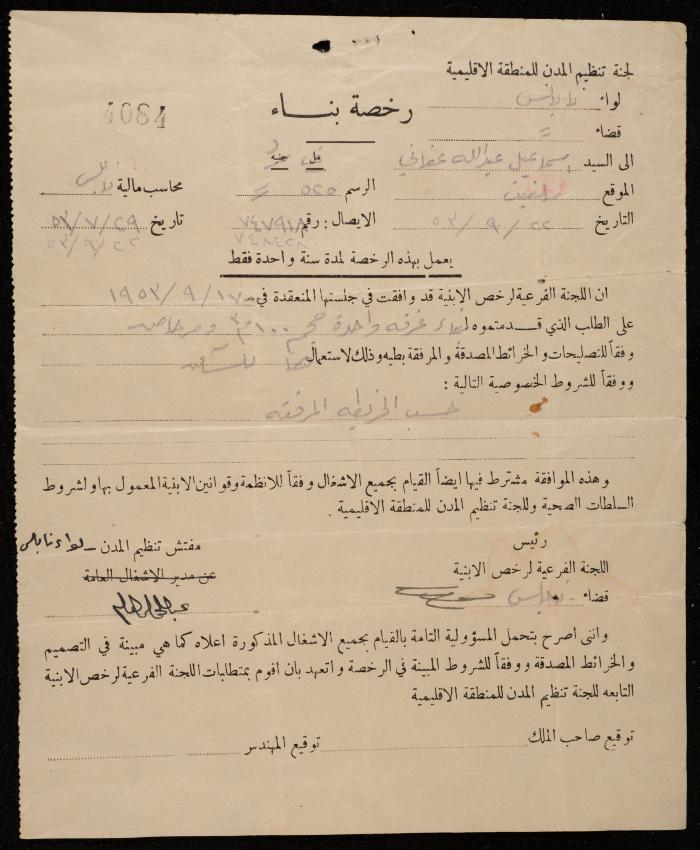 لجنة تنظيم المدن للمنطقة الاقليمية
لواء نابلس
رخصة بناء
4084
قضاء "
الى السيد اسماعيل عبدالله
فلس جنيه
محاسب مالية نابلس
الموقع
الرسم ٥٢٥
التاريخ ٢٢ / ٩ / ٥٣
الايصال : رقم ٧٤٧٩١٨
تاريخ ٥٣/٧/٢٩
٧٤٨٤٢٨
٥٣/٩/٢٢
يعمل بهذه الرخصة لمدة سنة واحدة فقط
ان اللجنة الفرعية لرخص الابنية قد وافقت في جلستها المنعقدة في ١٧ / ٩ / ١٩٥٣
على الطلب الذي قدمتموه لبناء غرفه واحدة حجم ١٠٠ م٣
وفقاً للتصليحات والخرائط المصدقة والمرفقة بطيه وذلك لاستعمالها للسكن
ووفقاً للشروط الخصوصية التالية :
حسب الخريطه المرفقه
وهذه الموافقة مشترط فيها ايضاً القيام بجميع الاشغال وفقاً للانظمة وقوانين الابنية المعمول بها ولشروط
السلطات الصحية ولجنة تنظيم المدن للمنطقة الاقليمية .
رئيس
اللجنة الفرعية لرخص الابنية
قضاء نابلس
مفتش تنظيم المدن - لواء نابلس
عن مدير الاشغال العامة
وانني اصرح بتحمل المسؤولية التامة بالقيام بجميع الاشغال المذكورة اعلاه كما هي مبينة في التصميم
والخرائط المصدقة ووفقاً للشروط المبينة في الرخصة واتعهد بان اقوم بمتطلبات اللجنة الفرعية لرخص الابنية
التابعه للجنة تنظيم المدن للمنطقة الاقليمية
توقيع صاحب الملك
توقيع المهندس